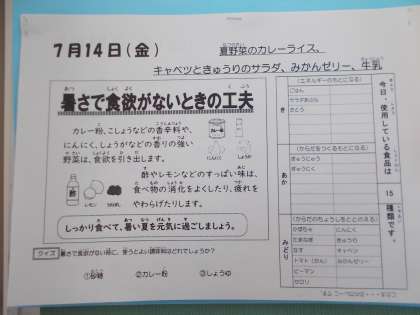 7月14日(金)
夏野菜のカレーライス、
キャベツときゅうりのサラダ、みかんゼリー、牛乳
暑さで食欲がないときの工夫
カレー粉、こしょうなどの香辛料や、
にんにく、しょうがなどの香りの強い
野菜は、食欲を引き出します。
カレー粉
にんにく
しょうが
酢やレモンなどのすっぱい味は、
食べ物の消化をよくしたり、疲れを
やわらげたりします。
酢
レモン
しっかり食べて、暑い夏を元気に過ごしましょう。
クイズ
暑さで食欲がない時に、使うとよい調味料はどれでしょうか?
①砂糖 ②カレー粉 ③しょうゆ
今日、使用している食品は 15 種類です。
(エネルギーのもとになる)
き
ごはん
サラダあぶら
さとう
(からだをつくるもとになる)
あか
ぎゅうにゅう
ぎゅうにく
(からだのちょうしをととのえる)
みどり
かぼちゃ
にんじん
たまねぎ
きゅうり
なす
キャベツ
トマト(かん)
みかんゼリー
ピーマン